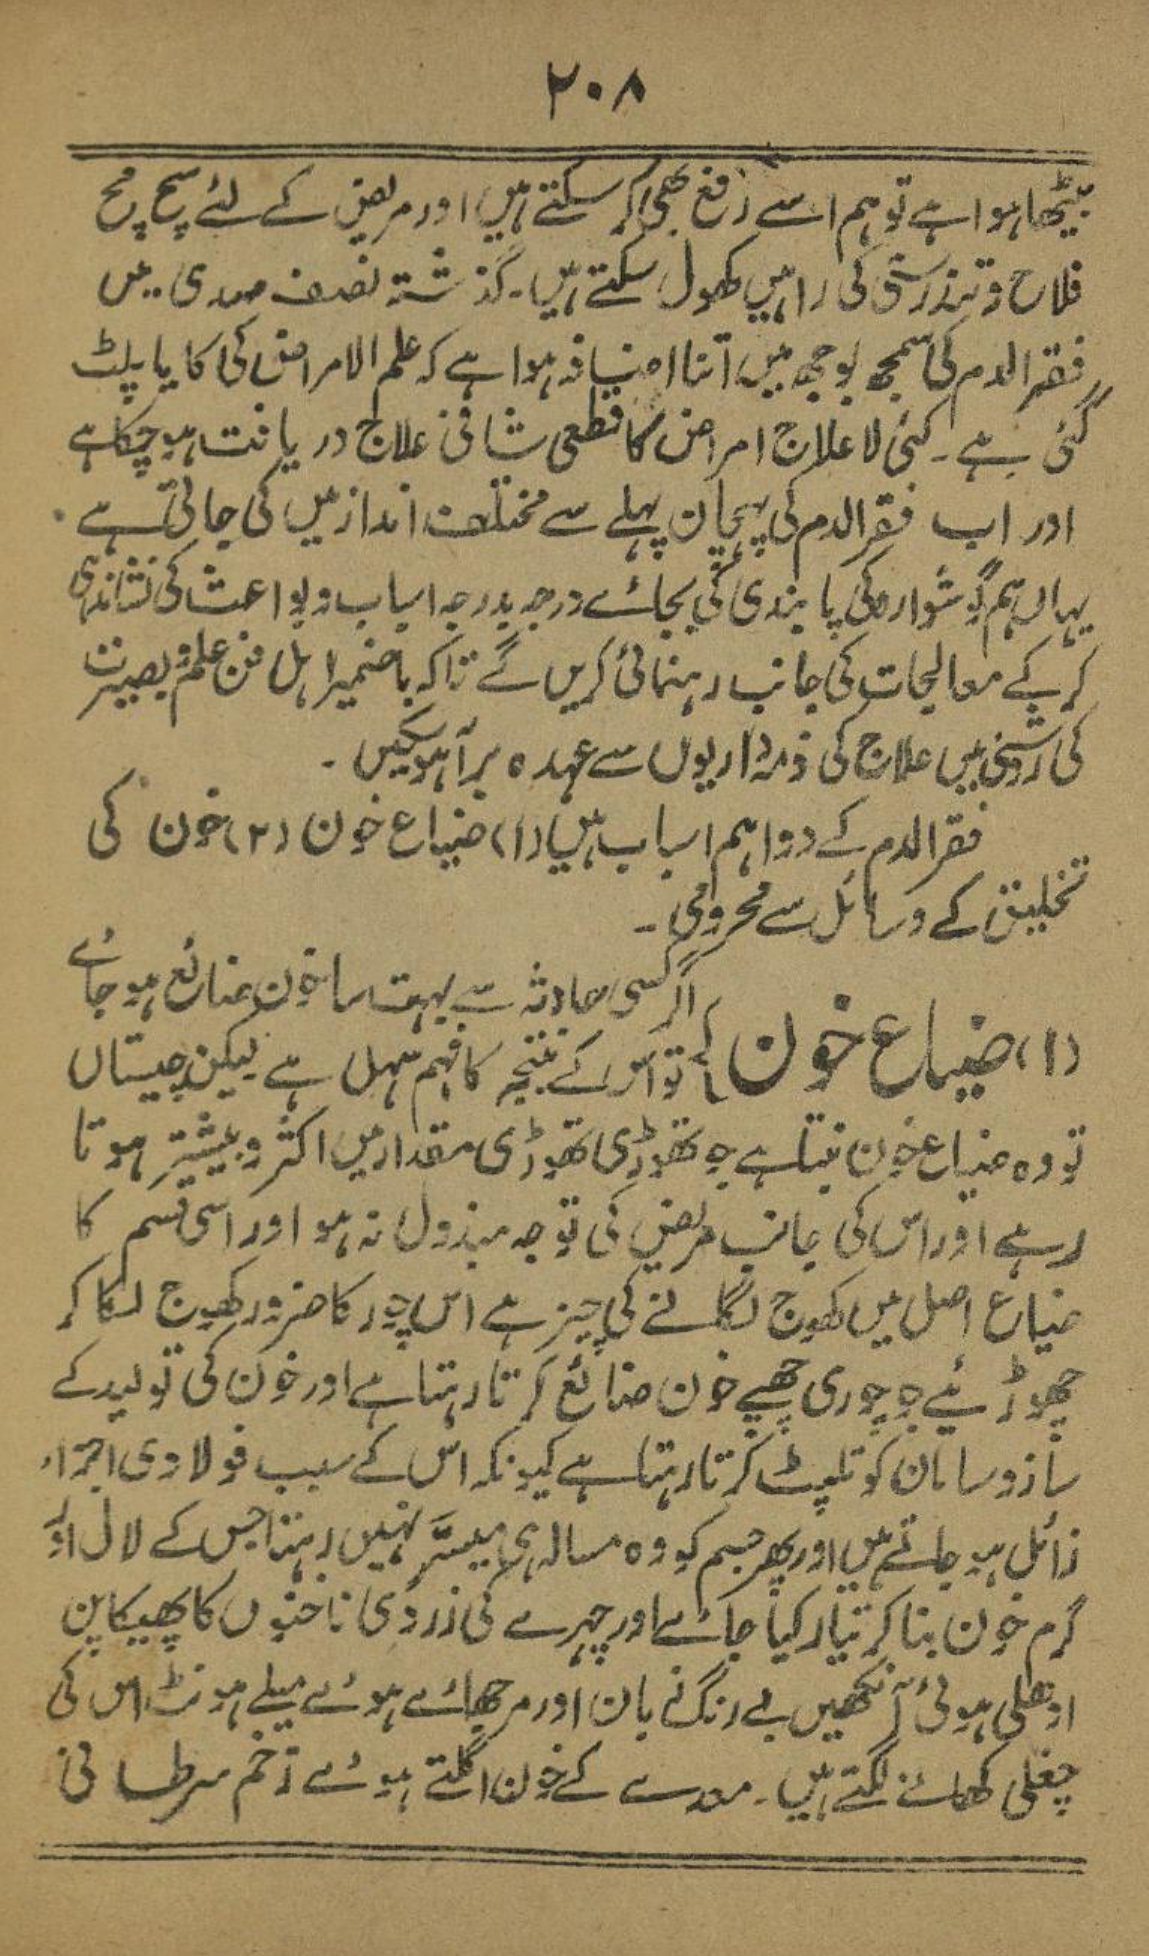 ۲۰۸
بیٹھا ہوا ہے تو ہم اسے رفع بھی کر سکتے ہیں اور مریض کے لئے سچ مچ
فلاح و تندرستی کی راہیں کھول سکتے ہیں۔ گذشتہ نصف صدی میں
فقر الدم کی سمجھ بوجھ میں اتنا اضافہ ہوا ہے کہ علم الامراض کی کایا پلٹ
گئی ہے۔ کئی لاعلاج امراض کا قطعی شافی علاج دریافت ہو چکا ہے
اور اب فقر الدم کی پہچان پہلے سے مختلف انداز میں کی جاتی ہے
یہاں ہم گوشوارہ کی پابندی کی بجائے درجہ بدرجہ اسباب و بواعث کی نشاندہی
کر کے معالجات کی جانب رہنمائی کریں گے تاکہ باضمیر اہل فن علم و بصیرت
کی روشنی میں علاج کی ذمہ داریوں سے عہدہ برآ ہو سکیں۔
فقر الدم کے دو اہم اسباب ہیں (۱) ضیاع خون (۲) خون کی
تخلیق کے وسائل سے محرومی۔
(۱) ضیاع خون اگر کسی حادثہ سے بہت سا خون ضائع ہو جائے
تو اس کے نتیجہ کا فہم سہل ہے لیکن چیستاں
تو وہ ضیاع خون بنتا ہے جو تھوڑی تھوڑی مقدار میں اکثر و بیشتر ہوتا
رہے اور اس کی جانب مریض کی توجہ مبذول نہ ہو اور اسی قسم کا
ضیاع اصل میں کھوج لگانے کی چیز ہے اس چور کا ضرور کھوج لگا کر
چھوڑئیے جو چوری چھپے خون ضائع کرتا رہتا ہے اور خون کی تولید کے
ساز و سامان کو تلپٹ کرتا رہتا ہے کیونکہ اس کے سبب فولادی اجزاء
زائل ہو جاتے ہیں اور پھر جسم کو وہ مسالہ ہی میسّر نہیں رہتا جس کے لال اور
گرم خون بنا کر تیار کیا جائے اور چہرے کی زردی ناخنوں کا پھیکا پن
ہوئی آنکھیں بے رنگ زبان اور مرجھائے ہوئے میلے ہونٹ اس کی
چغلی کھانے لگتے ہیں۔ معدے کے خون اگلتے ہوئے زخم سرطانی